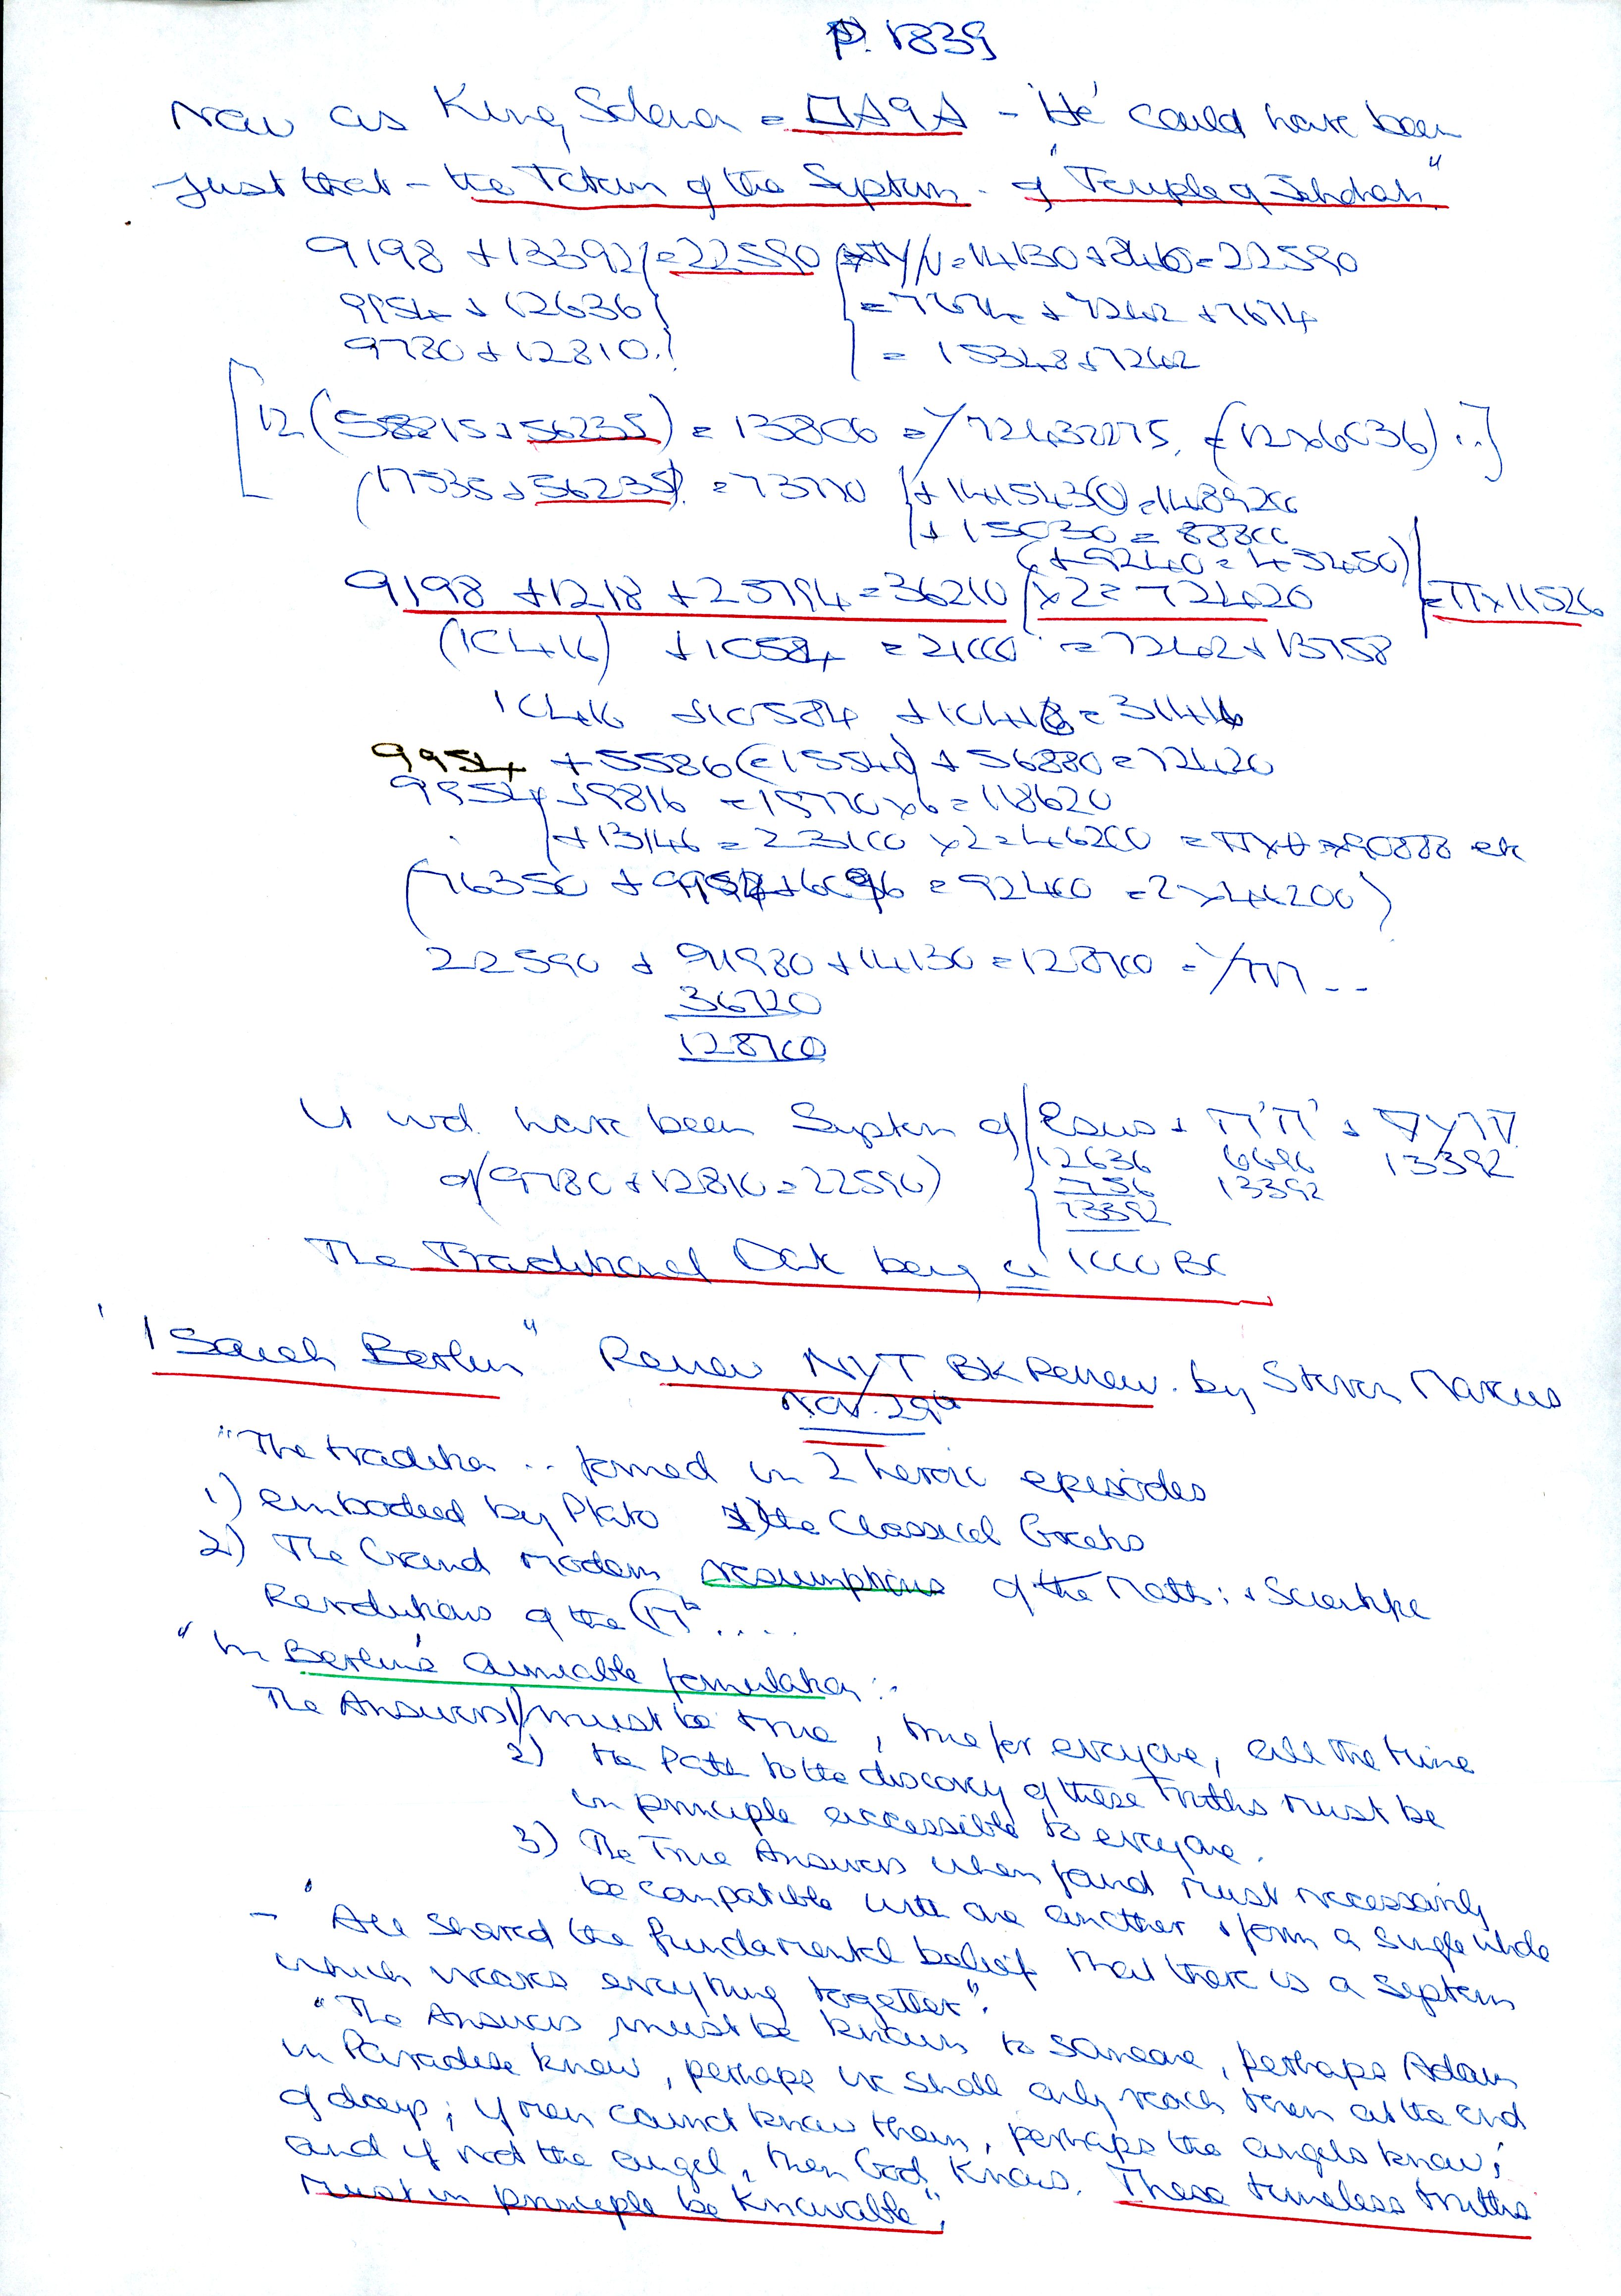 p. 1839
Now as King Solomon = - 'He' could have been
just that - the Totem of the System - of "Temple of Jehovah"
9198 + 13392 = 22590 = 14130 + 8460 = 22590
9954 + 12636 = 7674 + 7242 + 7674
9780 + 12810 = 15348 + 7242
[12 (58815 + 56235) = 13806 = 72432275. (12 x 6036) ..]
(17535 + 56235) = 73770 + 1415430 = 1489200
+ 15030 = 88800
(+ 9240 = 43450)
9198 + 1218 + 25794 = 36210 x 2 = 72420 = π x 11526
(10416) + 10584 = 21000 = 7242 + 13758
10416 + 10584 + 10416 = 31416
9954 + 5586 (= 15540) + 56880 = 72420
9954 + 9816 = 19770 x 6 = 118620
+ 13146 = 23100 x 2 = 46200 etc
(76350 + 9954 + 6096 = 92400 = 2 x 46200)
22590 + 91980 + 14130 = 128700 =
36720
128700
U wd. have been System of
12636 6696 13392
of (9780 + 12810 = 22590) 756 13392
13392
The Traditional Date being c 1000 BC
'Isaiah Berlin" Review NYT BK Review. by Steven Marcus
Nov. 29th
"The tradition .. formed in 2 heroic episodes
1) embodied by Plato & the Classical Greeks
2) The Grand modern Resumptions of the Math: + Scientific
Revolutions of the 17th ....
"In Berlin's amiable formulation :-
The Answers 1) must be true, true for everyone, all the time
2) the Path to the discovery of these Truths must be
in principle accessible to everyone.
3) The True Answers when found must necessarily
be compatible with one another + form a single whole
- "All shared the fundamental belief that there is a system
which weaves everything together".
"The Answers must be known to someone, perhaps Adam
in Paradise knew, perhaps we shall only reach them at the end
of days; if men cannot know them, perhaps the angels know;
and if not the angel, then God knows. These timeless truths
must in principle be knowable".